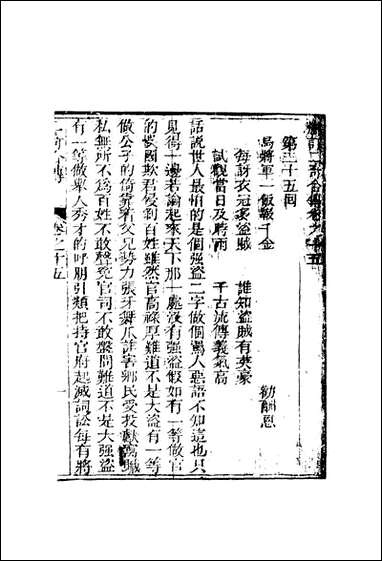 二奇合傳卷之十五
第三十五回
烏將軍一飯報千金　勸酬恩
每訝衣冠多盜賊　誰知盜賊有英豪
試觀當日及時雨　千古流傳義氣高
話說世人最怕的是個强盜二字做個罵人惡語不知這也只
見得一邊若論起來天下那一處沒有强盜假如有一等做官
的誤國欺君侵剝百姓雖然官高祿厚難道不是大盜有一等
做公子的倚靠着父兄勢力張牙舞爪詐害鄉民受投獻窩贓
私無所不爲百姓不敢聲寃官司不敢盤問難道不是大强盜
有一等做舉人秀才的呼朋引類把持官府起滅詞訟每有將
二奇合傳　卷之十五　一